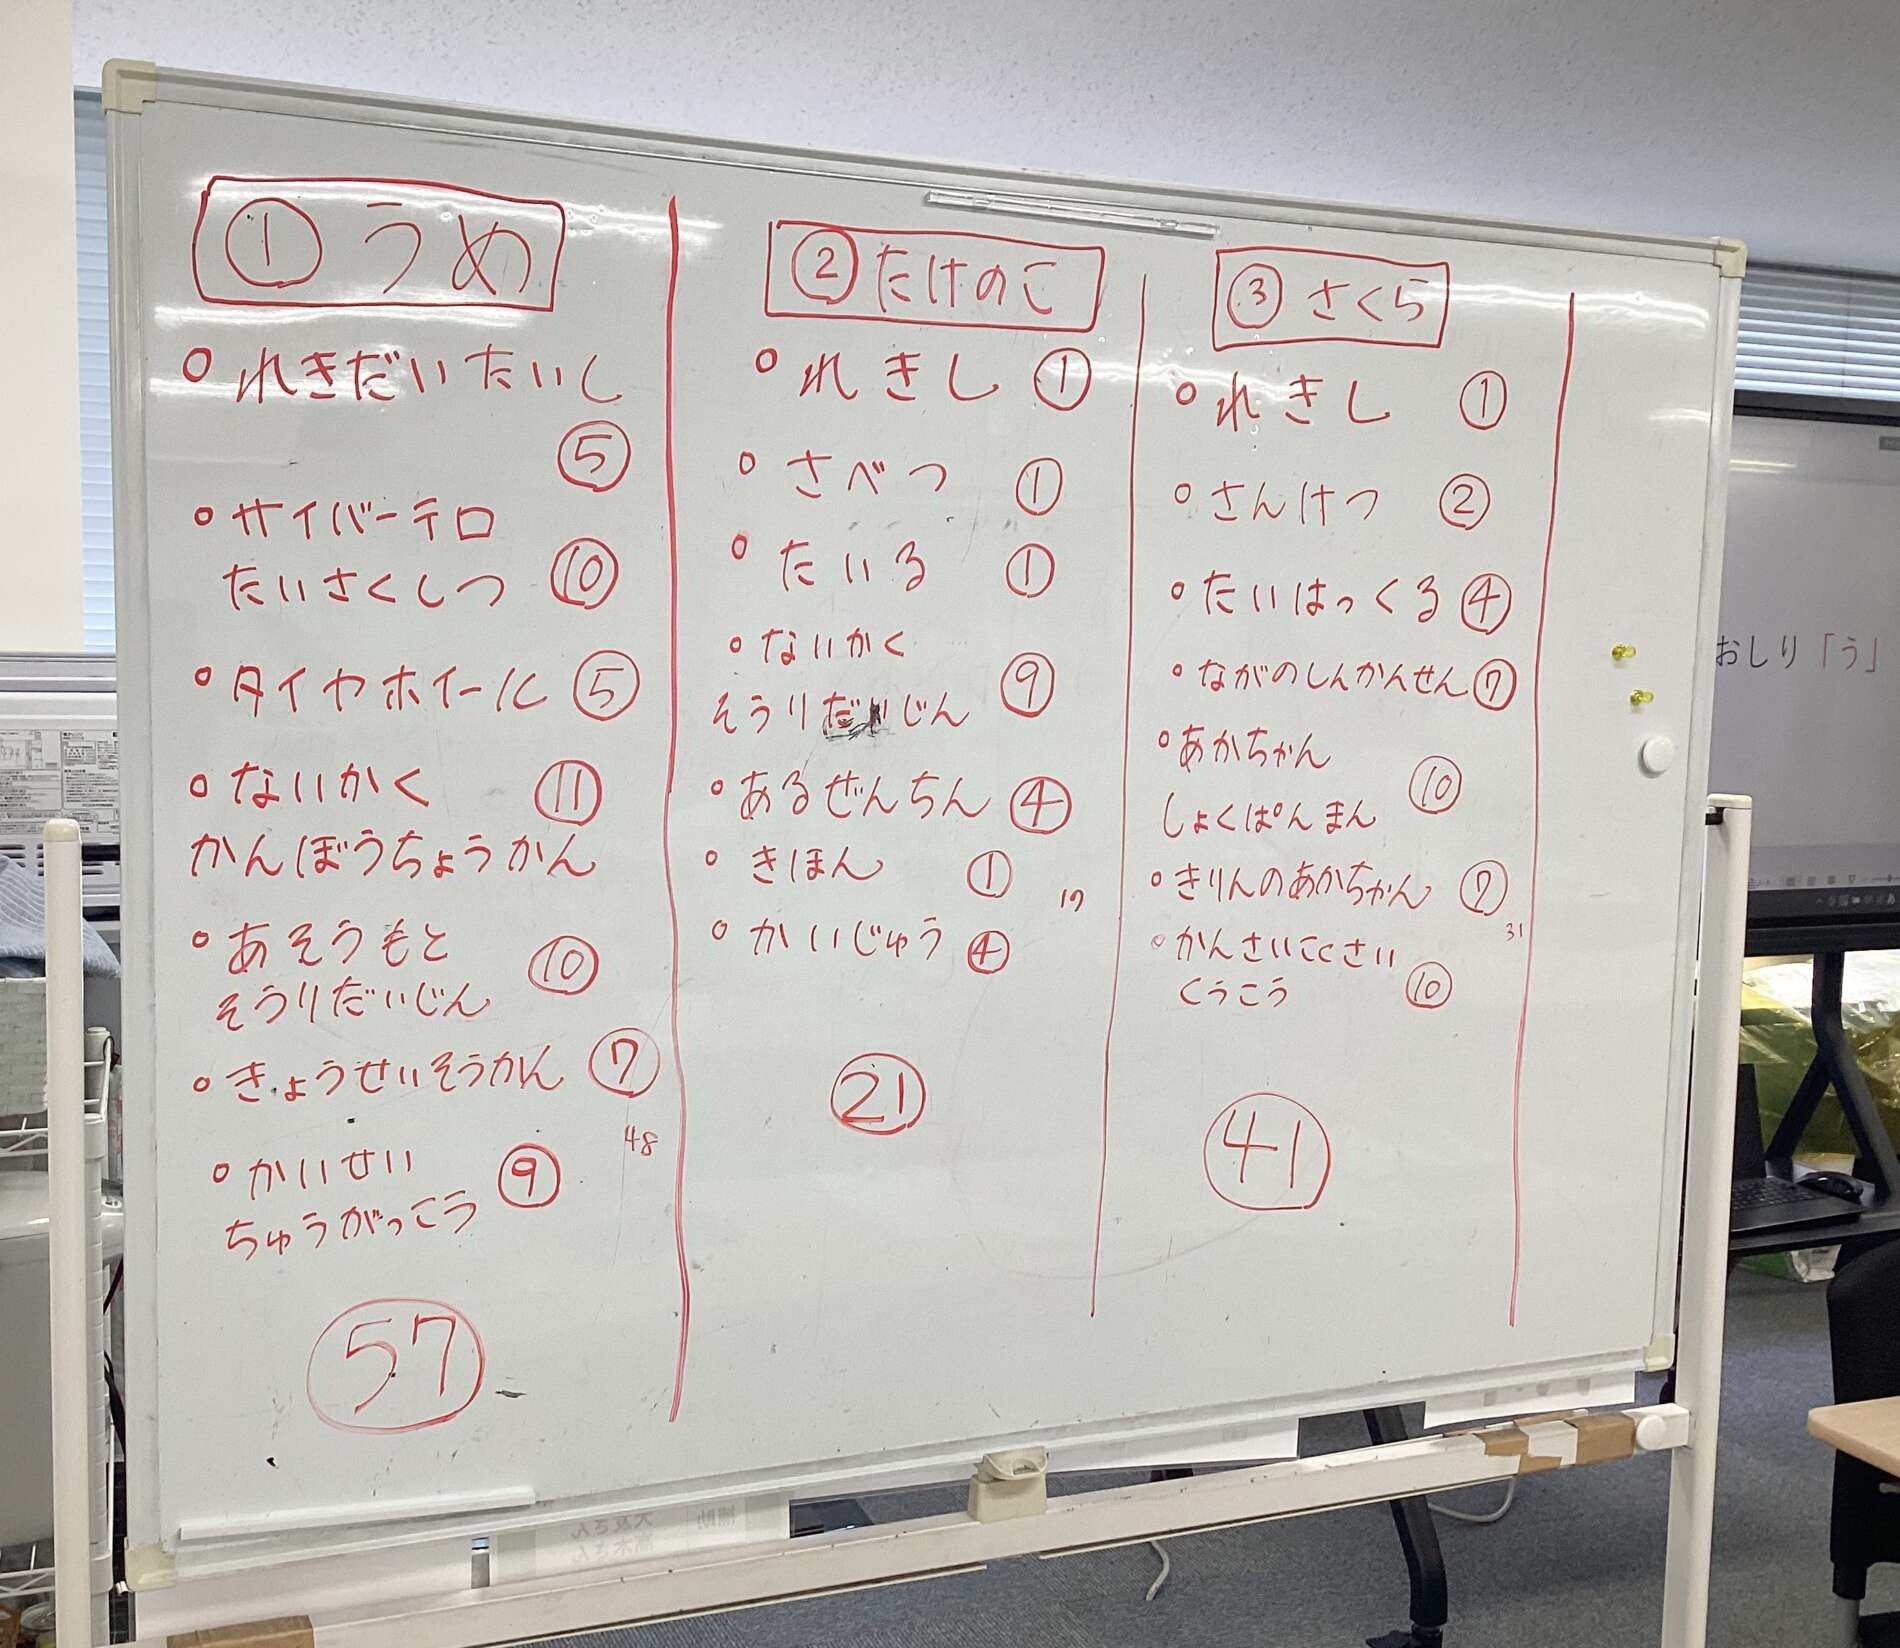 ① うめ
○ れきだいたいし
⑤
○ サイバーテロ
たいさくしつ ⑩
○ タイヤホイール ⑤
○ ないかく ⑪
かんぼうちょうかん
○ あそうもと
そうりだいじん ⑩
○ きょうせいそうかん ⑦
48
○ かいせい ⑨
ちゅうがっこう
57
② たけのこ
○ れきし ①
○ さべつ ①
○ たいる ①
○ ないかく
そうりだいじん ⑨
○ あるぜんちん ④
○ きほん ①
17
○ かいじゅう ④
21
③ さくら
○ れきし ①
○ さんけつ ②
○ たいはっくる ④
○ ながのしんかんせん ⑦
○ あかちゃん
しょくぱんまん ⑩
○ きりんのあかちゃん ⑦
31
○ かんさいこくさい
くうこう ⑩
41
おしり「う」
補助